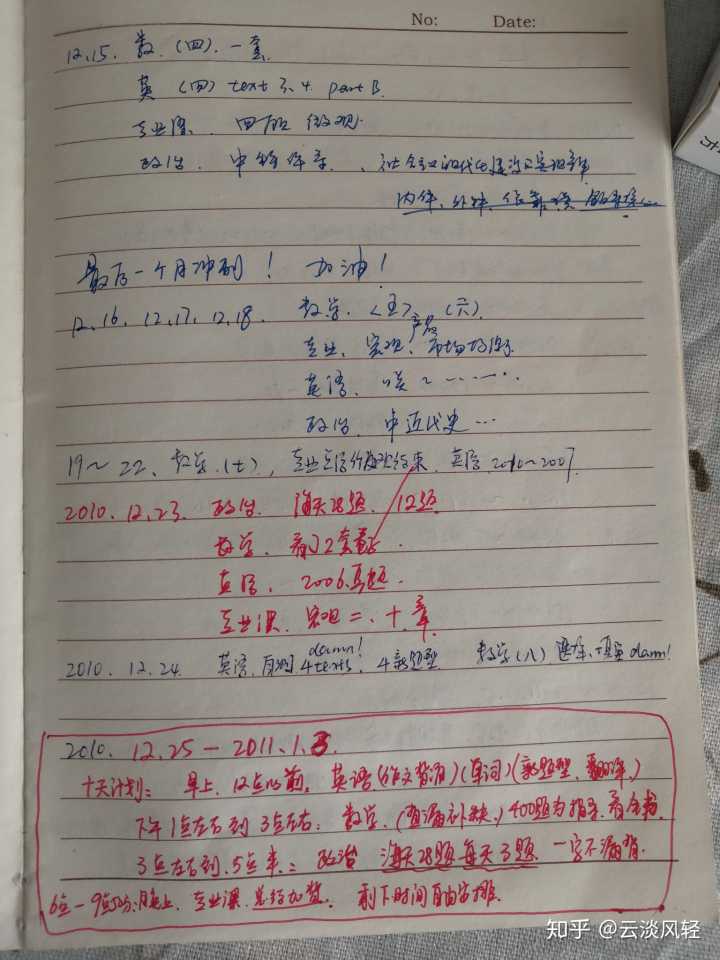 No: Date:
12.15. 数.(四).一套.
英 (四) text 3.4. part B.
专业课. 四 微观.
政治. 中特体系、社会主义
内体,外体,
最后一个月冲刺! 加油!
12.16, 12.17, 12.18. 数学.<五>,(六).
专业.宏观.市场
英语.
政治.中近代史…
19~22.数学.(七),专业 结束.英语 2010~2007
2010.12.23. 政治. 海天28题. 12题
数学. 看了2套
英语. 2006真题.
专业课.宏观二.十章
2010.12.24. 英语. damn! 4texts. 4新题型 数学(八) damn!
2010. 12.25-2011.1.3.
十天计划: 早上.12点以前.英语(作文背诵)(单词)(新题型、翻译、)
下午1点左右到3点左右:数学.(查漏补缺、)400题为指导.看全书.
3点左右到5点半:政治 海天28题每天3题 一字不漏背.
6点-9点 晚上.专业课.总结 剩下时间自由安排.
知乎 @云淡风轻